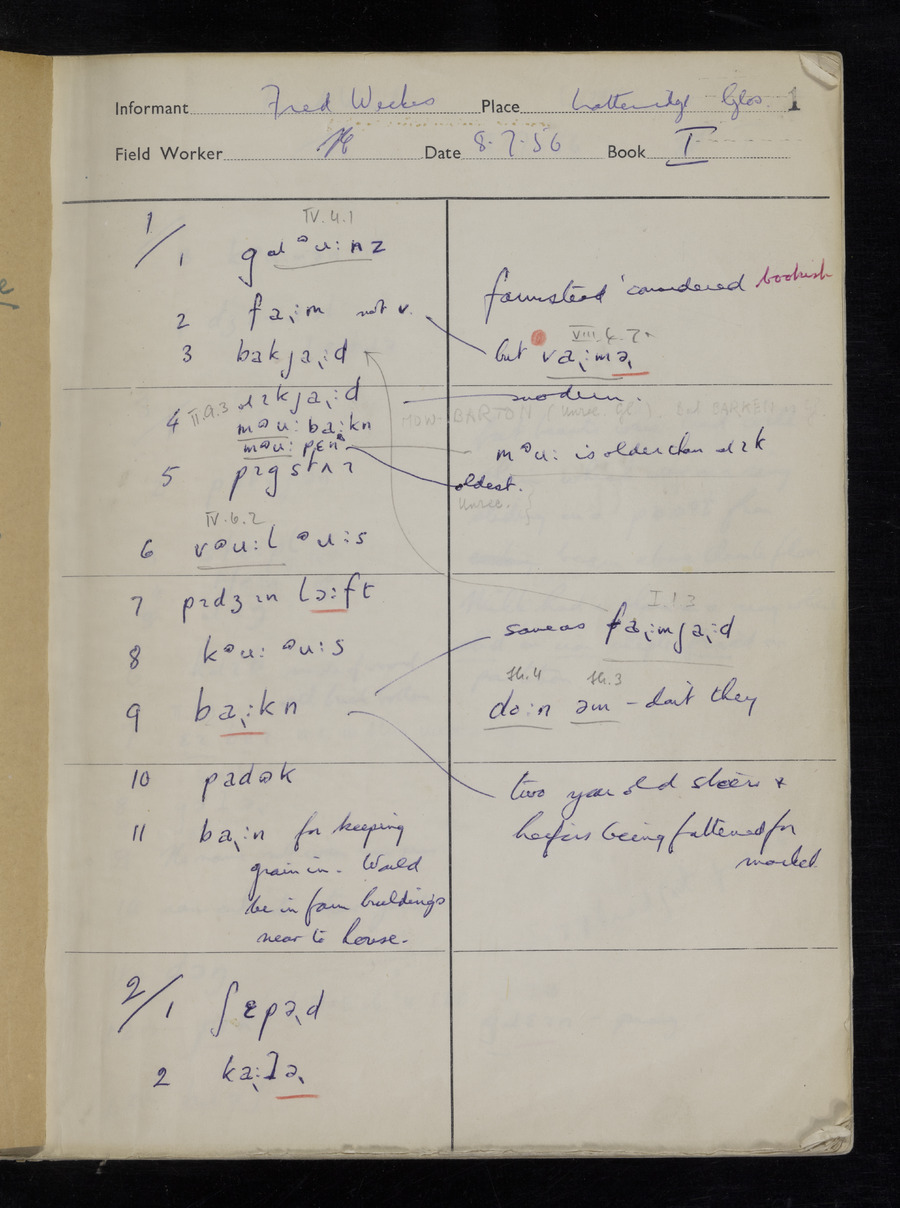 Informant Fred Weekes Place Latteridge Glos 1
Field Worker Date 8.7.56 Book I
IV.4.1
1/1
farmstead considered bookish
2 fa˞:m not v.
VIII.4.7
3 bakja˞:d
but va˞:mə˞
modern.
4 II.9.3 ɹɪkja˞:d
MOW-BARTON (unrec. Gl.). But BARKEN
məu: ba:kn
məu: pɛn
məu: is older than ɹɪk
5 pɪgstʌɪ
oldest.
unrec.
IV.6.2
6 vəu:l əu:s
7 pɪdʒɪn lɔ:ft
I.1.3
8 kəu: əu:s
same as fa˞:mja˞:d
9 ba˞:kn
do:n əm - don't they
10 padək
two year old steers +
11 ba˞:n for keeping
heifers being fattened for
grain in. Would
market
be in farm buildings
near to house.
2/1 ʃɛpə˞d
2 ka˞:lə˞